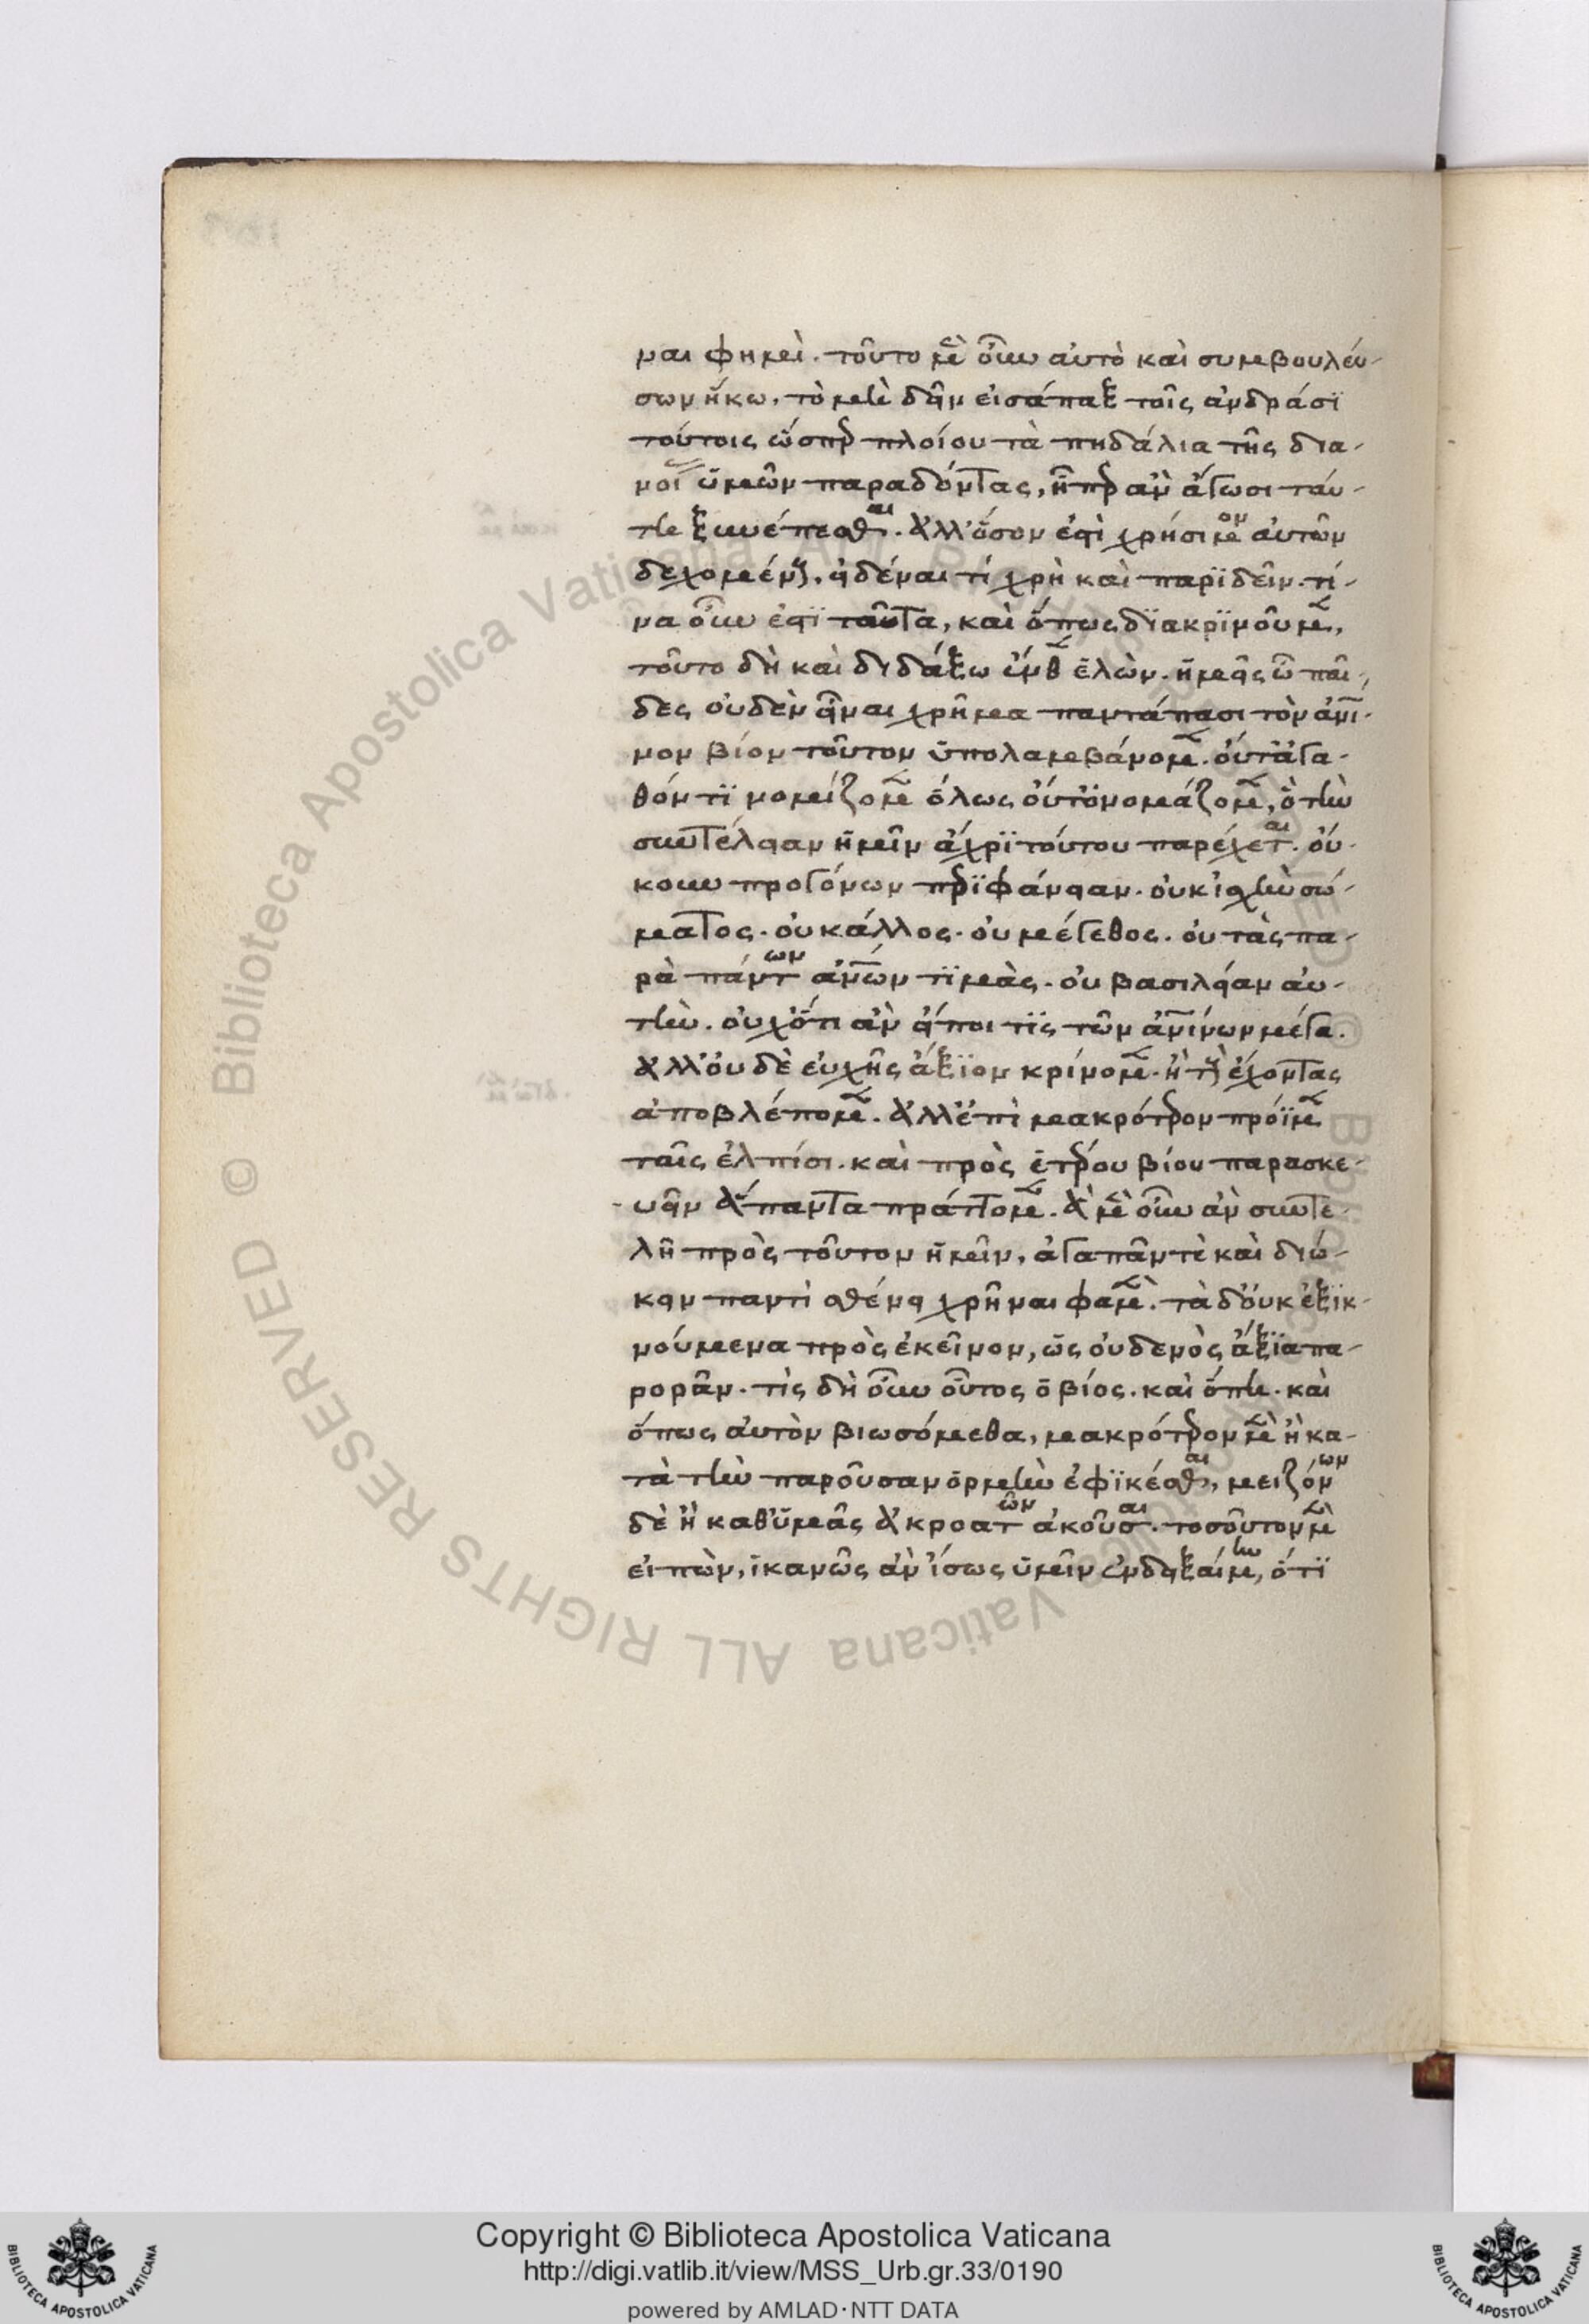 ναι φημὶ. τοῦτο μὲν οὖν αὐτὸ καὶ συμβουλεύ-
σων ἥκω, τὸ μὴ δεῖν εἰσάπαξ τοῖς ἀνδράσϊ
τούτοις ὥσπερ πλοίου τὰ πηδάλια τῆς δια-
νοίας ὑμῶν παραδόντας, ἧπερ ἂν ἄγωσι ταύ-
τῃ ξυνέπεσθαι. ἀλλ' ὅσον ἐστὶ χρήσιμον αὐτῶν
δεχομένους. εἰδέναι τί χρὴ καὶ παρϊδεῖν. τί-
να οὖν ἐστϊ ταῦτα, καὶ ὅπως δϊακρϊνοῦμεν,
τοῦτο δὴ καὶ διδάξω ἐνθεν ἑλών. ἡμεῖς ὦ παῖ-
δες οὐδὲν εἶναι χρῆμα παντάπασι τὸν ἀνθρώπι-
νον βίον τοῦτον ὑπολαμβάνομεν. οὔτ' ἀγα-
θόν τϊ νομίζομεν ὅλως οὔτ' ὀνομάζομεν, ὃ τὴν
συντέλειαν ἡμῖν ἄχρϊ τούτου παρέχεται. οὔ-
κουν προγόνων περϊφάνειαν. οὐκ ἰσχὺν σώ-
ματος. οὐ κάλλος. οὐ μέγεθος. οὐ τὰς πα-
ρὰ πάντων ἀνθρώπων τϊμὰς. οὐ βασιλείαν αὐ-
τὴν. οὐχ ὅτι ἂν εἴποι τϊς τῶν ἀνθρωπίνων μέγα.
ἀλλ' οὐδὲ εὐχῆς ἄξϊον κρίνομεν. ἢ τοὺς ἔχοντας
ἀποβλέπομεν. ἀλλ' ἐπὶ μακρότερον πρόϊμεν
ταῖς ἐλπίσι. καὶ πρὸς ἑτέρου βίου παρασκε-
υὴν ἅπαντα πράττομεν. ἃ μὲν οὖν ἂν συντε-
λῆ πρὸς τοῦτον ἡμῖν, ἀγαπᾶν τὲ καὶ διώ-
κειν παντὶ σθένει χρῆναι φαμὲν. τὰ δ' οὐκ ἐξϊκ-
νούμενα πρὸς ἐκεῖνον, ὡς οὐδενὸς ἄξϊα πα-
ρορᾶν. τὶς δὴ οὖν οὗτος ὁ βίος. καὶ ὅπῃ. καὶ
ὅπως αὐτὸν βιωσόμεθα, μακρότερον μὲν ἢ κα-
τὰ τὴν παροῦσαν ὁρμὴν ἐφϊκέσθαι, μειζόνων
δὲ ἢ καθ' ὑμᾶς ἀκροατῶν ἀκοῦσαι. τοσοῦτον μὲν
εἰπὼν, ἱκανῶς ἂν ἴσως ὑμῖν ἐνδειξαίμην, ὅτϊ